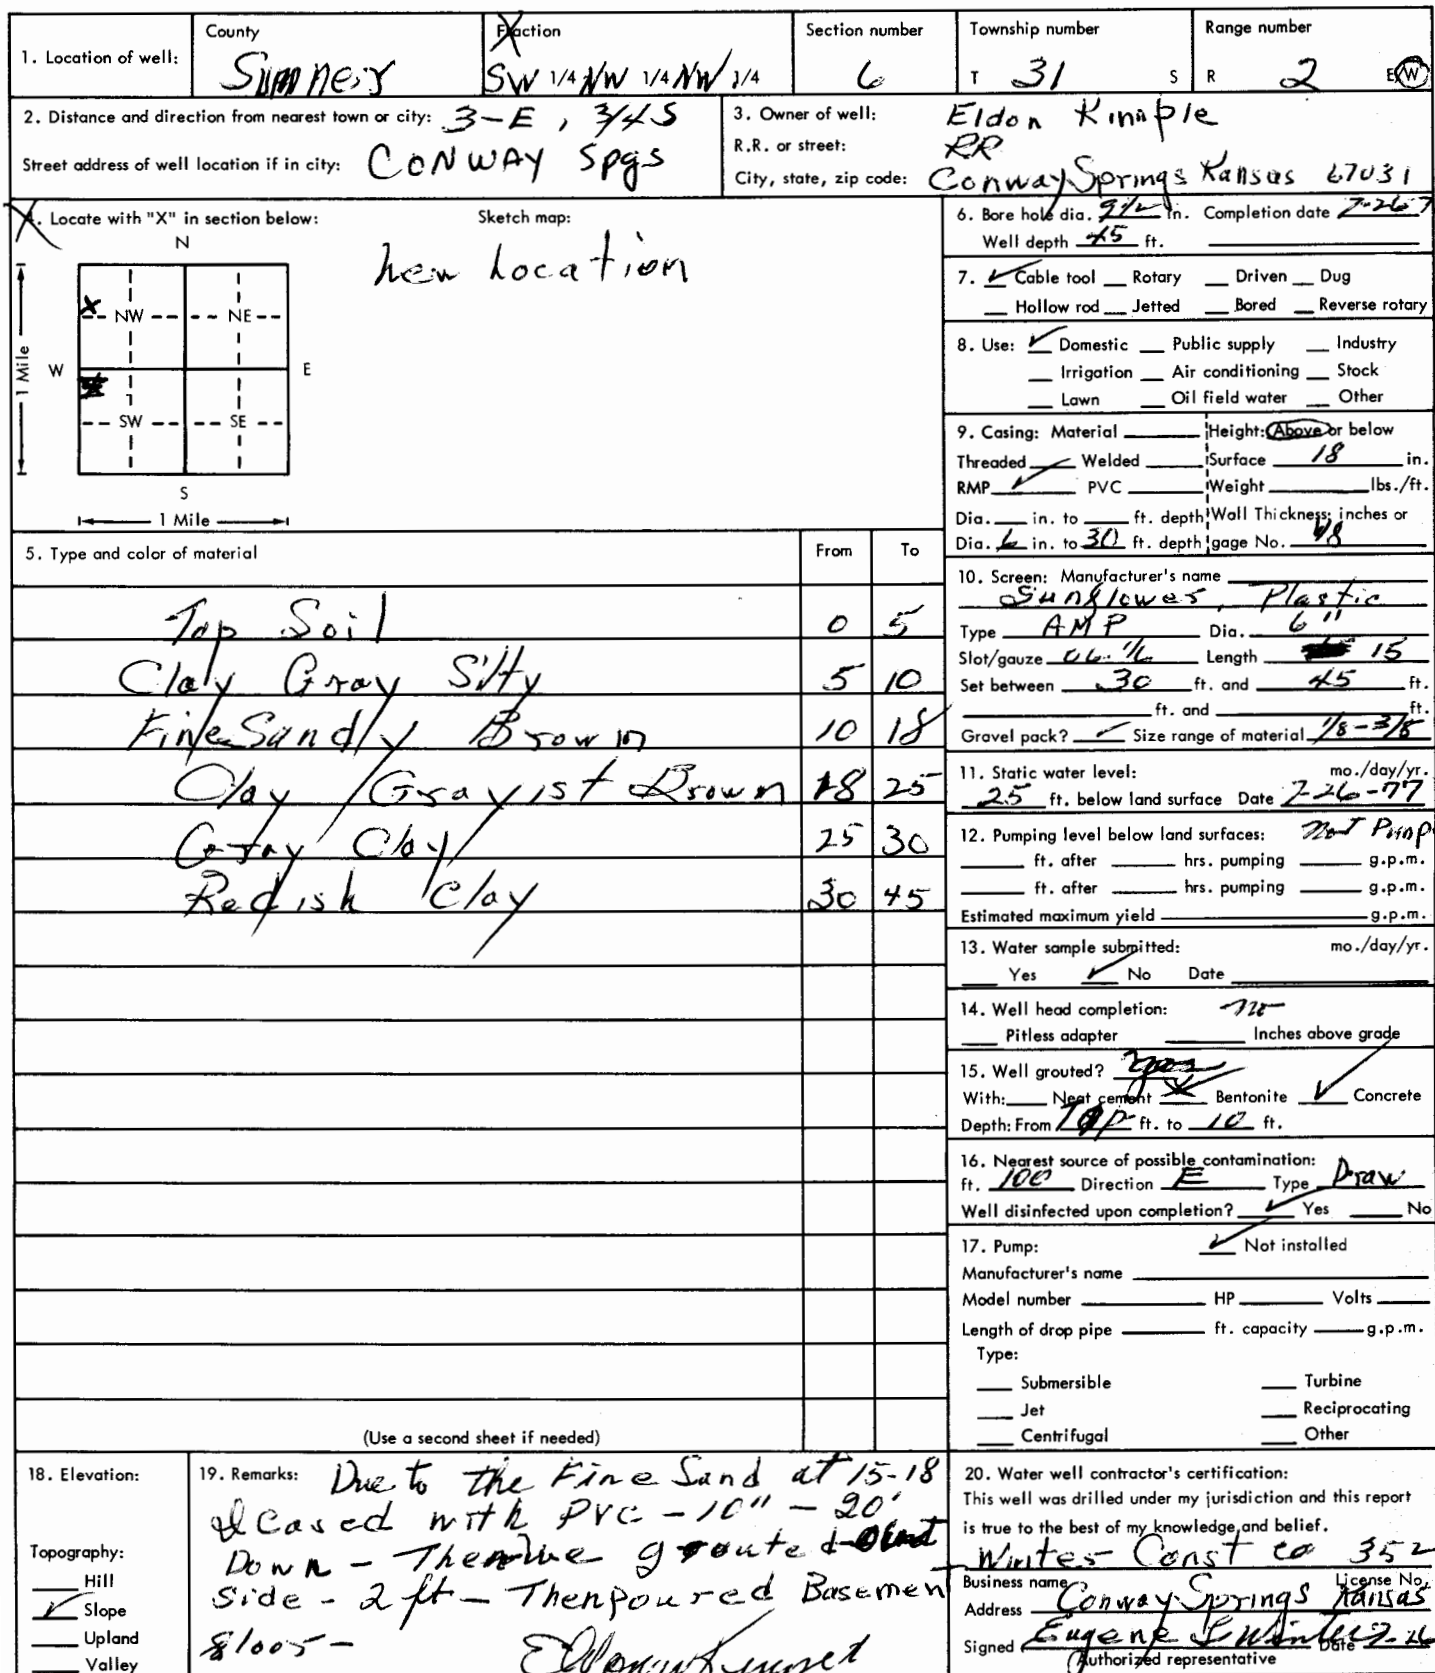 1. Location of well:
County
Sumner
Fraction
SW 1/4 NW 1/4 NW 1/4
Section number
6
Township number
T 31 S
Range number
R 2 E W
2. Distance and direction from nearest town or city: 3-E, 3/4 S
Street address of well location if in city: CONWAY Spgs
3. Owner of well: Eldon
R.R. or street: RR
City, state, zip code: Conway Springs Kansas 67031
4. Locate with "X" in section below:
Sketch map:
new Location
N
X
NW NE
W E
1 Mile
SW SE
S
1 Mile
5. Type and color of material From To
Top Soil 0 5
Clay Gray Silty 5 10
Fine Sandy Brown 10 18
Clay Grayist Brown 18 25
Gray Clay 25 30
Redish Clay 30 45
(Use a second sheet if needed)
6. Bore hole dia. 9 1/2 in. Completion date 7-26-7
Well depth 45 ft.
7. ✓ Cable tool Rotary Driven Dug
Hollow rod Jetted Bored Reverse rotary
8. Use: ✓ Domestic Public supply Industry
Irrigation Air conditioning Stock
Lawn Oil field water Other
9. Casing: Material Height: Above or below
Threaded Welded Surface 18 in.
RMP ✓ PVC Weight lbs./ft.
Dia. in. to ft. depth Wall Thickness: inches or
Dia. 6 in. to 30 ft. depth gage No.
10. Screen: Manufacturer's name
Sunflower Plastic
Type AMP Dia. 6"
Slot/gauze Length 15
Set between 30 ft. and 45 ft.
ft. and ft.
Gravel pack? ✓ Size range of material 1/8-3/8
11. Static water level: mo./day/yr.
25 ft. below land surface Date 7-26-77
12. Pumping level below land surfaces: not Pump
ft. after hrs. pumping g.p.m.
ft. after hrs. pumping g.p.m.
Estimated maximum yield g.p.m.
13. Water sample submitted: mo./day/yr.
Yes ✓ No Date
14. Well head completion: no
Pitless adapter Inches above grade
15. Well grouted? yes
With: Neat cement Bentonite ✓ Concrete
Depth: From Top ft. to 10 ft.
16. Nearest source of possible contamination:
ft. 100 Direction E Type Draw
Well disinfected upon completion? ✓ Yes No
17. Pump: ✓ Not installed
Manufacturer's name
Model number HP Volts
Length of drop pipe ft. capacity g.p.m.
Type:
Submersible Turbine
Jet Reciprocating
Centrifugal Other
18. Elevation:
Topography:
Hill
✓ Slope
Upland
Valley
19. Remarks: Due to the Fine Sand at 15-18
Cased with PVC - 10" - 20'
Down - Then we grouted
Side - 2 ft - Then poured Basemen
20. Water well contractor's certification:
This well was drilled under my jurisdiction and this report
is true to the best of my knowledge and belief.
Winter Const co 352
Business name License No.
Address Conway Springs Kansas
Signed Eugene Winter Date 7-26
Authorized representative